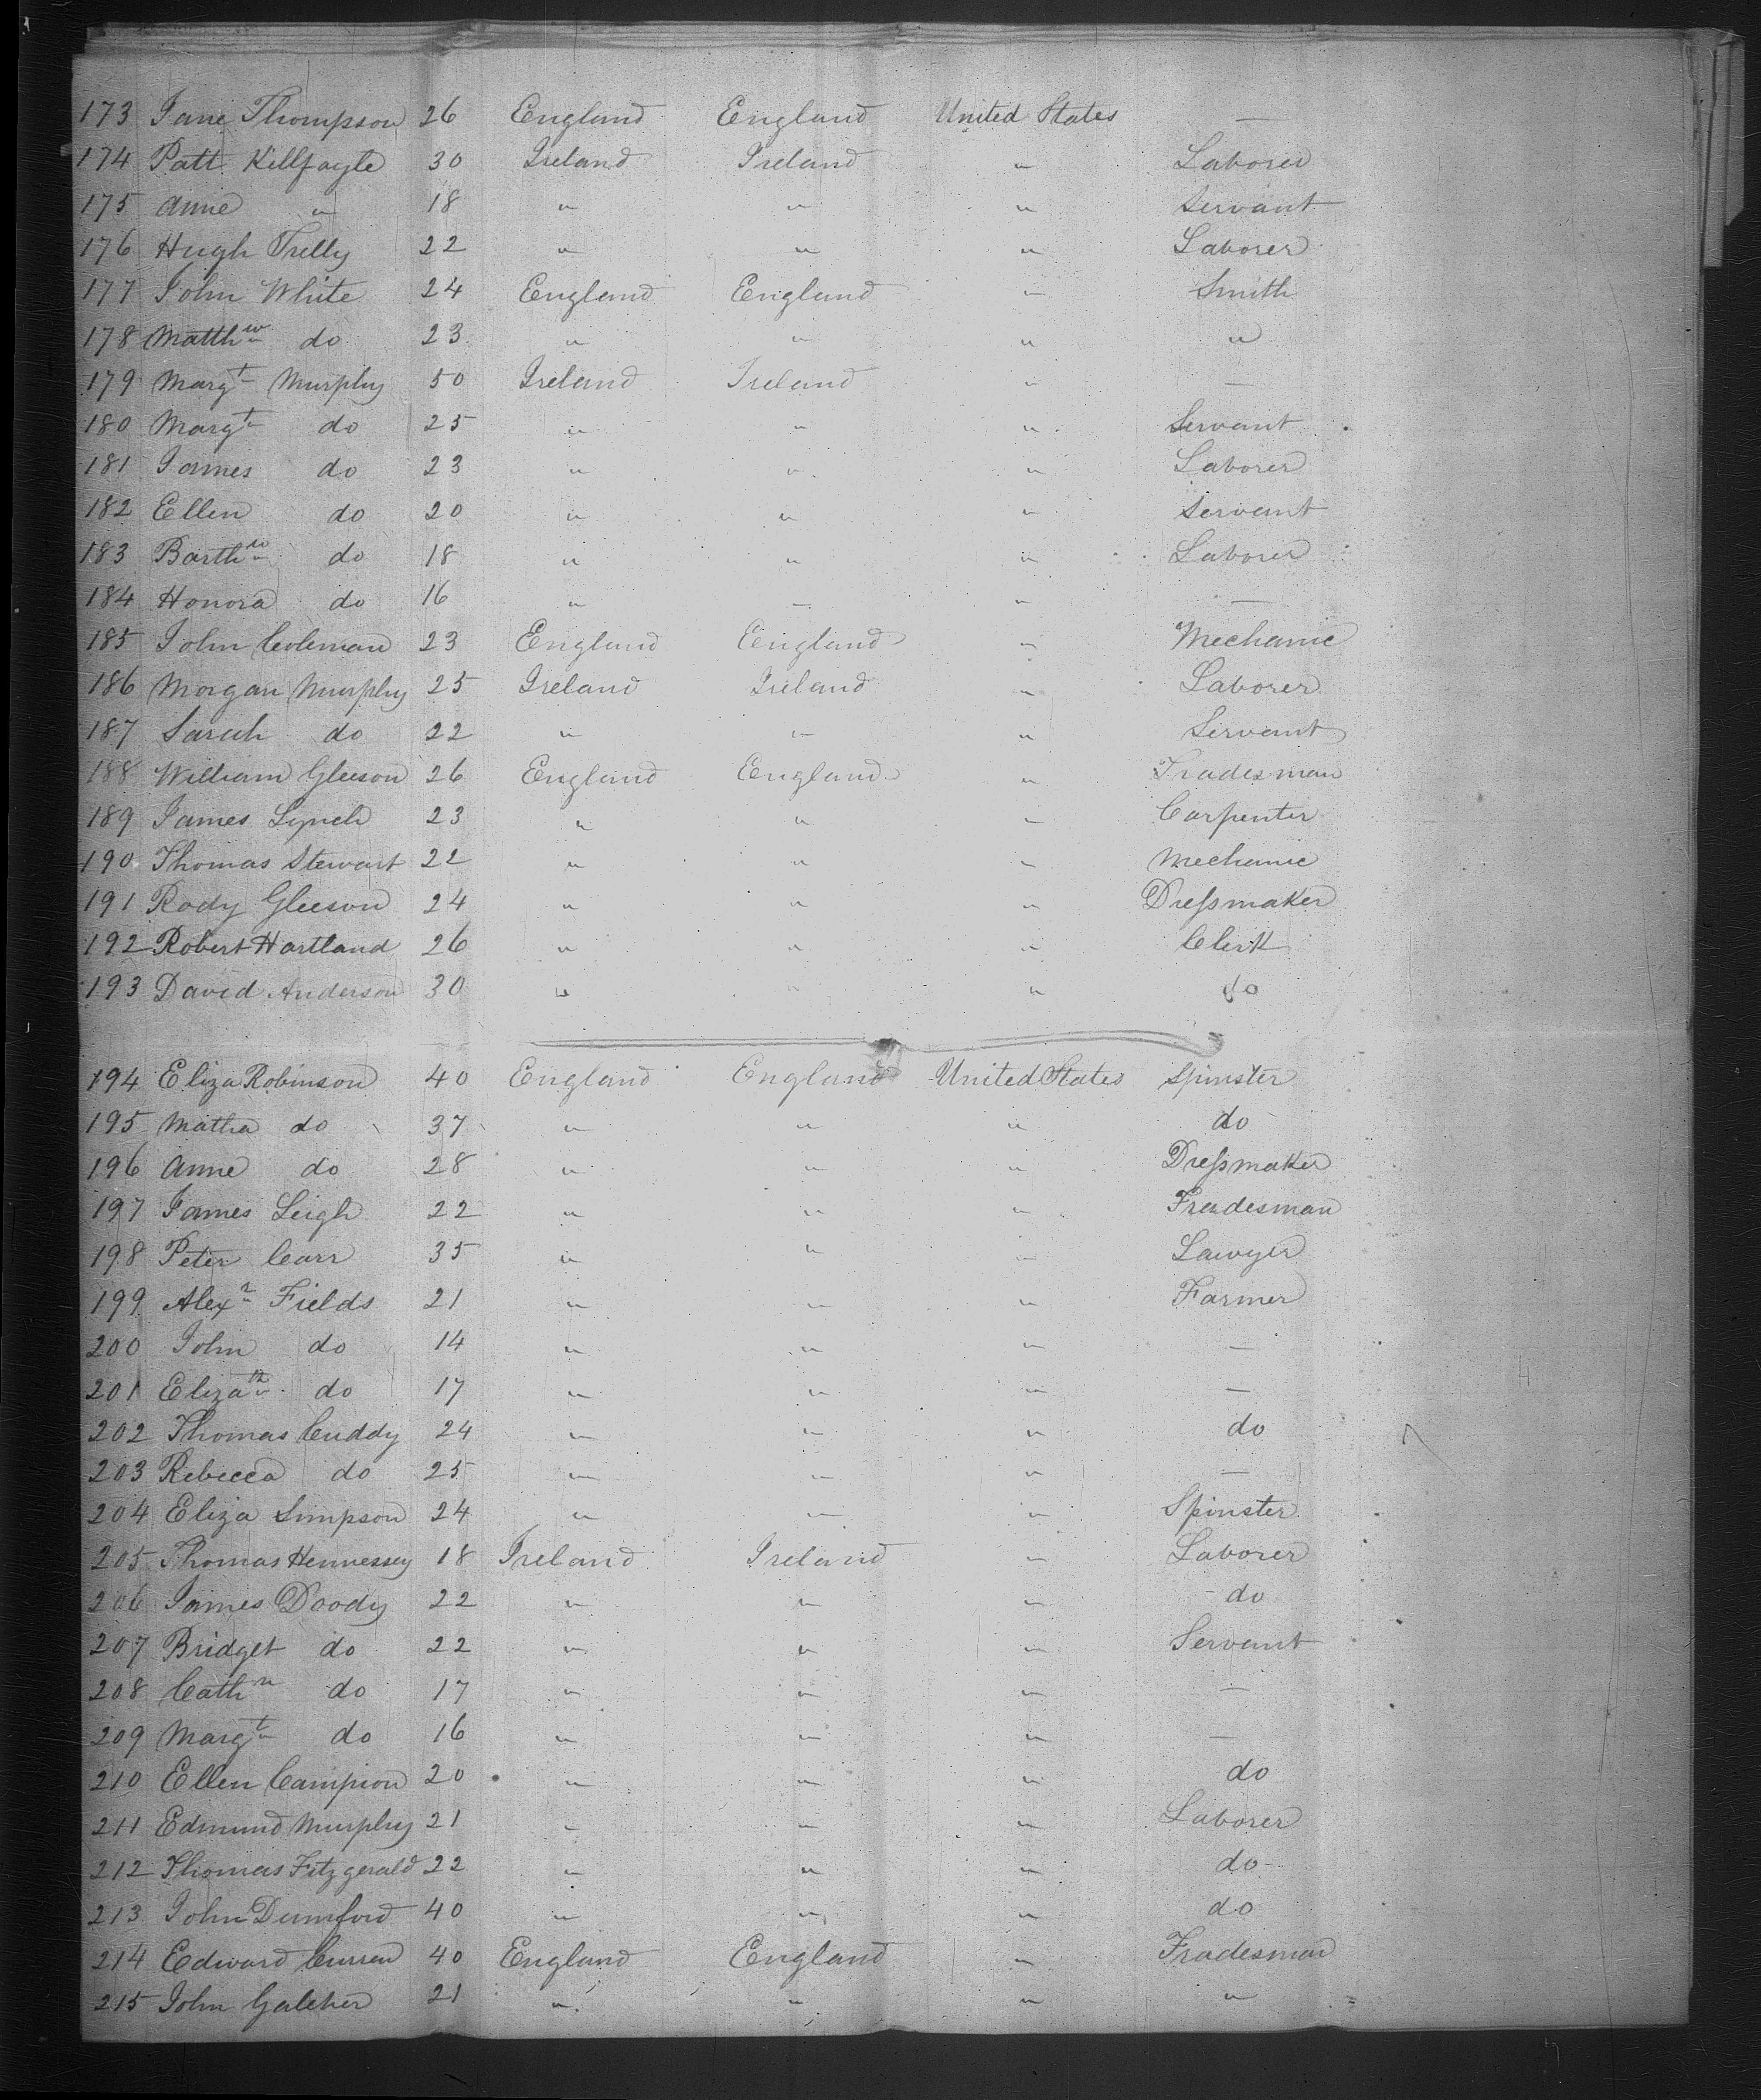 173 Jane Thompson 26 England England United States —
174 Patt Killfoyle 30 Ireland Ireland " Laborer
175 Anne " 18 " " " Servant
176 Hugh Trelly 22 " " " Laborer
177 John White 24 England England " Smith
178 Matthw do 23 " " " "
179 Margt Murphy 50 Ireland Ireland " —
180 Margt do 25 " " " Servant
181 James do 23 " " " Laborer
182 Ellen do 20 " " " Servant
183 Barthw do 18 " " " Laborer
184 Honora do 16 " " " —
185 John Coleman 23 England England " Mechanic
186 Morgan Murphy 25 Ireland Ireland " Laborer
187 Sarah do 22 " " " Servant
188 William Gleeson 26 England England " Tradesman
189 James Lynch 23 " " " Carpenter
190 Thomas Stewart 22 " " " Mechanic
191 Rody Gleeson 24 " " " Dressmaker
192 Robert Hartland 26 " " " Clerk
193 David Anderson 30 " " " do
194 Eliza Robinson 40 England England United States Spinster
195 Matha do 37 " " " do
196 Anne do 28 " " " Dressmaker
197 James Leigh 22 " " " Tradesman
198 Peter Carr 35 " " " Lawyer
199 Alexr Fields 21 " " " Farmer
200 John do 14 " " " —
201 Elizath do 17 " " " —
202 Thomas Cuddy 24 " " " do
203 Rebecca do 25 " " " —
204 Eliza Simpson 24 " " " Spinster
205 Thomas Hennessey 18 Ireland Ireland " Laborer
206 James Doody 22 " " " do
207 Bridget do 22 " " " Servant
208 Cathn do 17 " " " —
209 Margt do 16 " " " —
210 Ellen Campion 20 " " " do
211 Edmund Murphy 21 " " " Laborer
212 Thomas Fitzgerald 22 " " " do
213 John Dumford 40 " " " do
214 Edward Curren 40 England England " Tradesman
215 John Galeher 21 " " " "